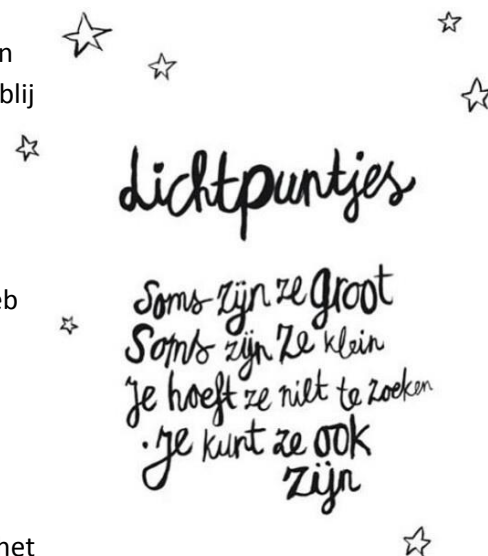 n
blij
Lichtpuntjes
Soms zijn ze groot
eb
Soms zijn ze klein
Je hoeft ze niet te zoeken
Je kunt ze ook
zijn
net